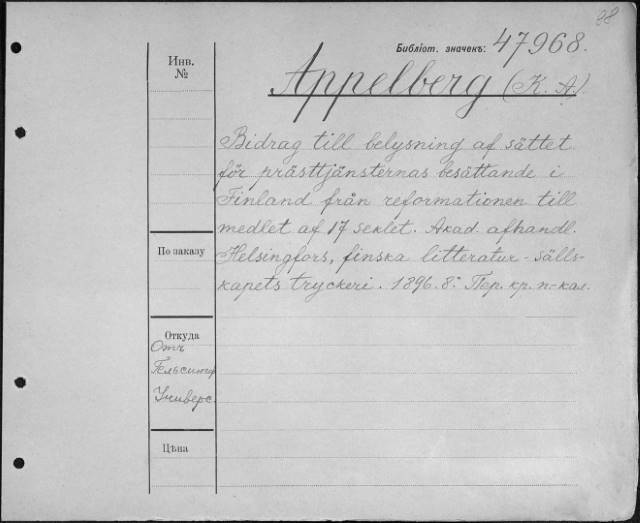 88
Библіот. значекъ: 47968.
Инв.
№
Appelberg (K. A.)
Bidrag till belysning af sättet
för prästtjänsternas besättande i
Finland från reformationen till
medlet af 17 seklet. Akad. afhandl.
Helsingfors, finska litteratur-sälls-
kapets tryckeri. 1896. 8.° Пер. кр. п-кал.
По заказу
Откуда
Отъ
Гельсингф.
Универс.
Цѣна